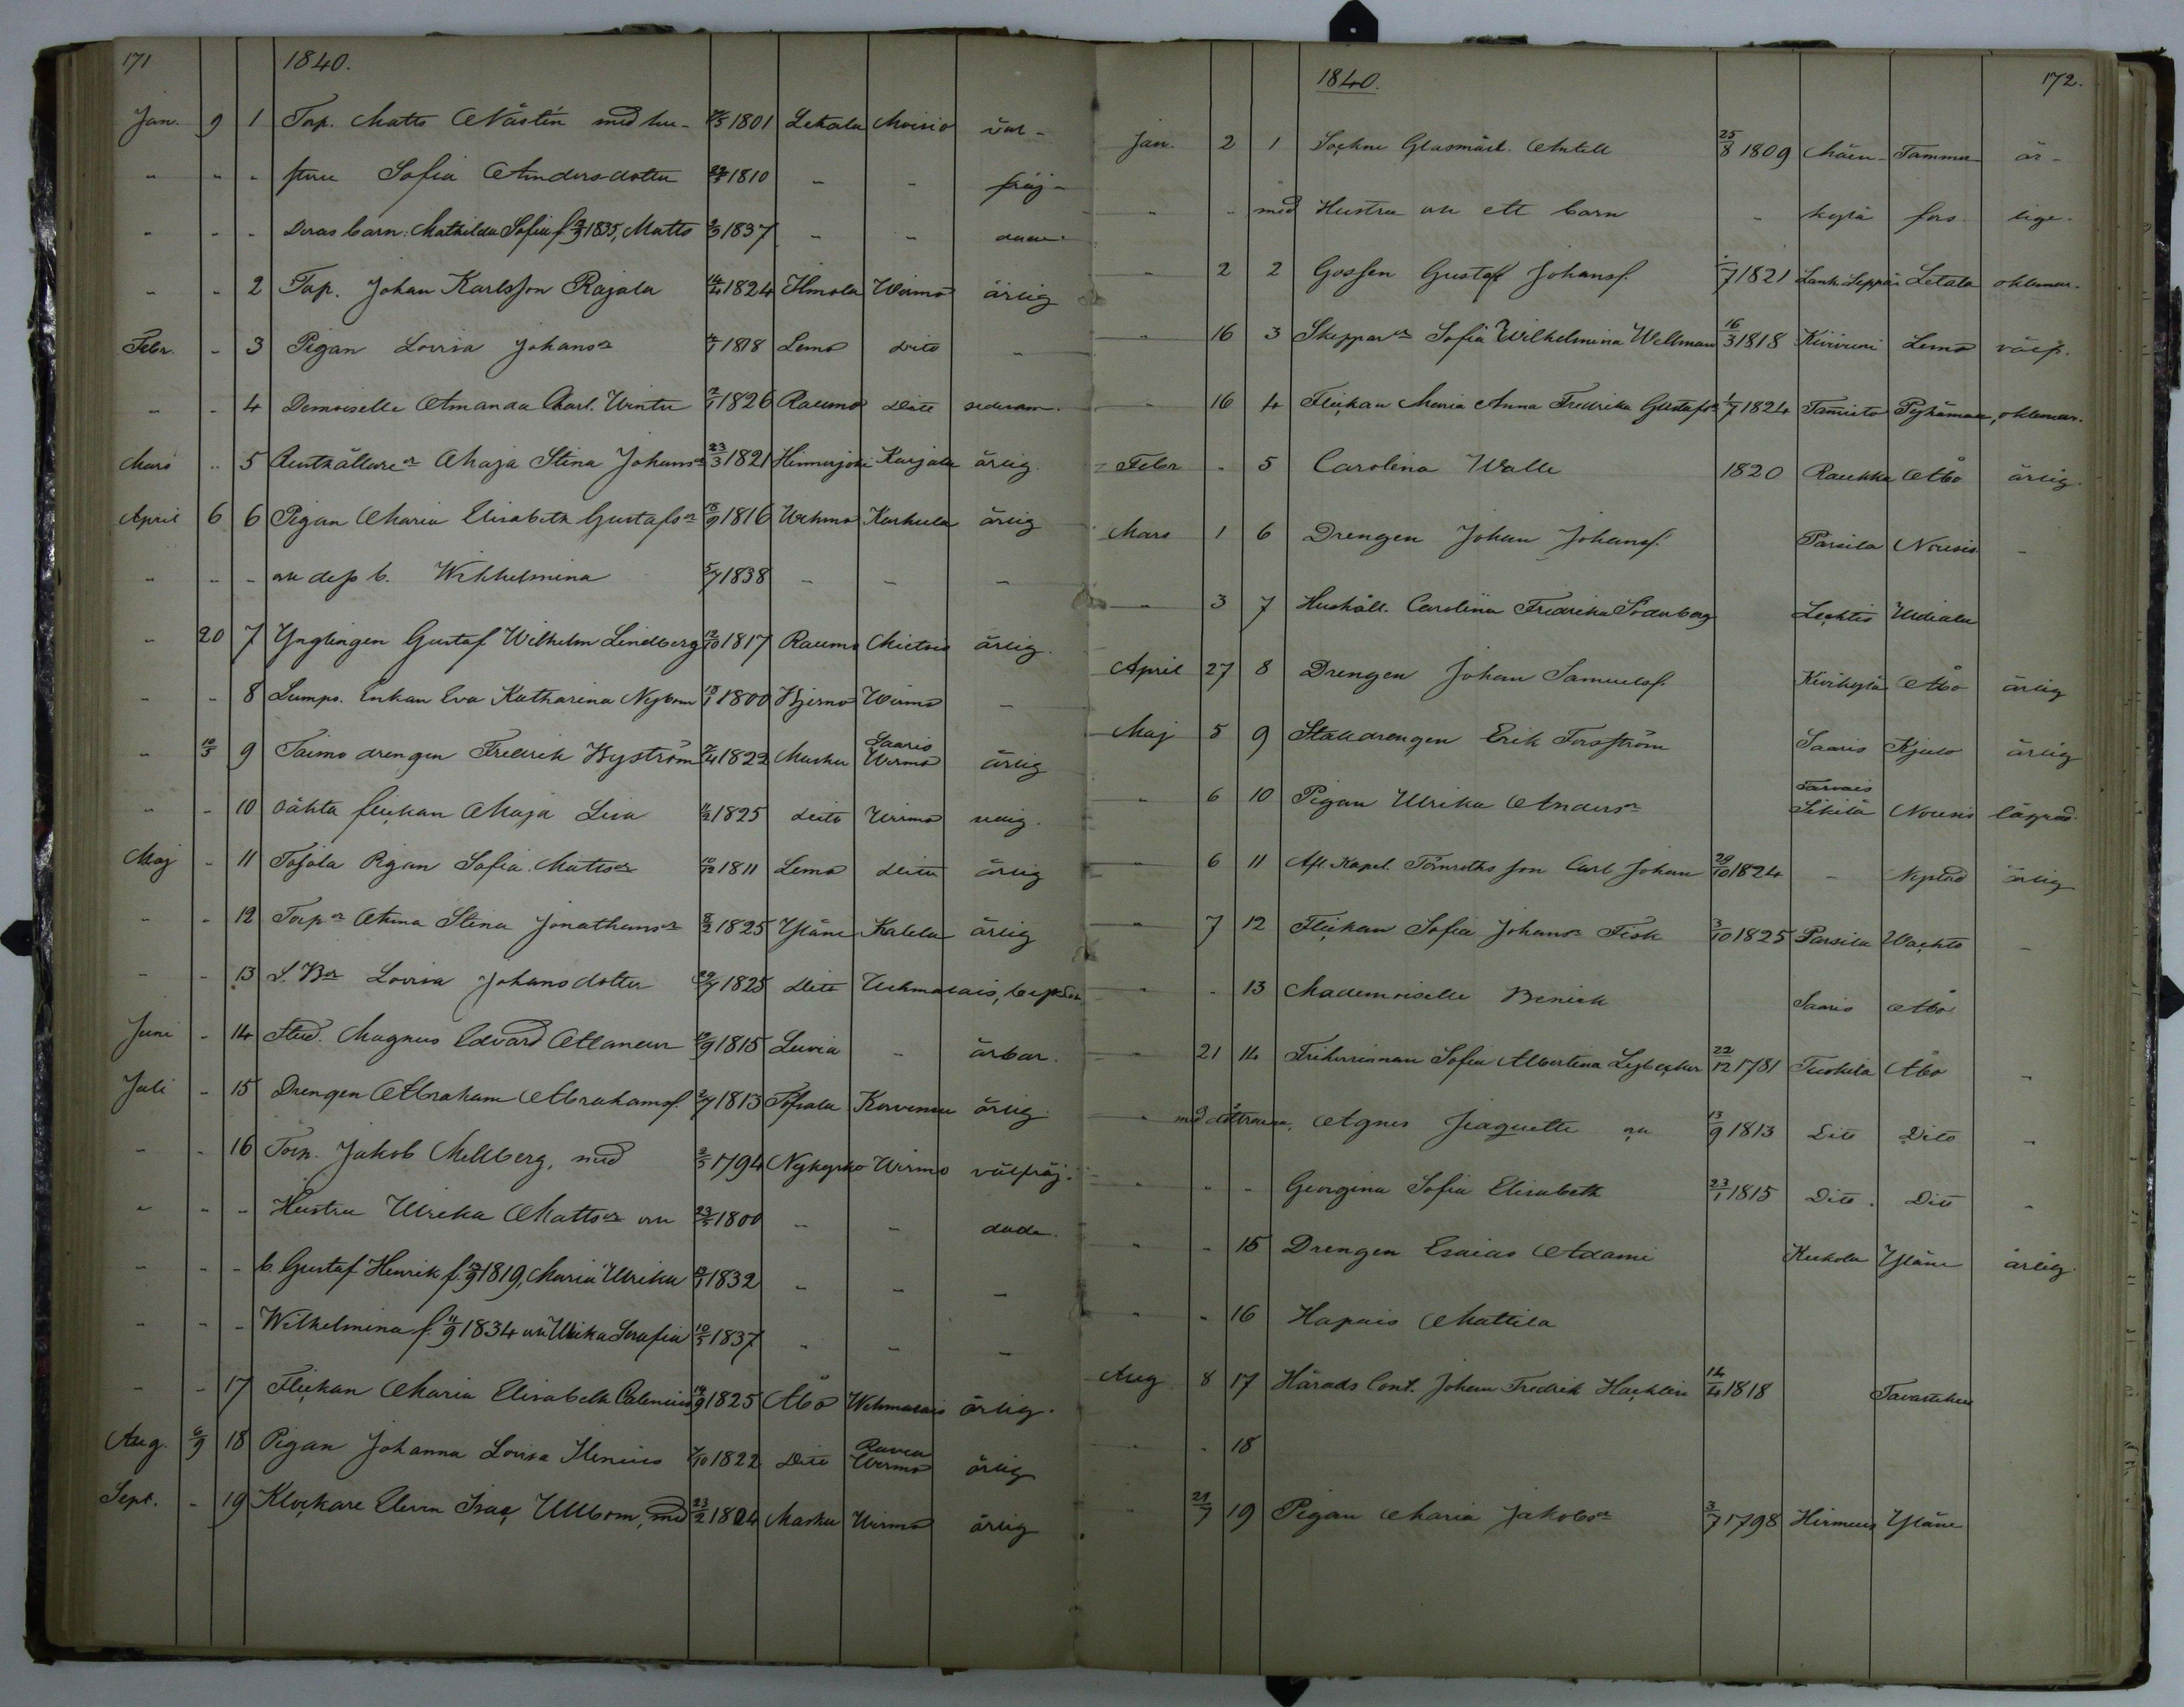 171
1840.
Jan. 9 1 Torp. Matts Nästen med hu- 1801 Letala Moisio väl-
" " " stru Sofia Andersdotter 1810 " " fräj-
" " " Deras barn: Mathilda Sofia f. 1835, Matts 1837 " "
" " 2 Torp. Johan Karlsson Rajala 1824 Himola Wirmo ärlig
Febr. " 3 Pigan Lovisa Johansr 1818 Lemo Dito "
" " 4 Demoiselle Amanda Charl. Winter 1826 Raumo Dito sedesam.
Mars " 5 Maja Stina Johansr 23/3 1821 Hinnerjoki Karjala ärlig
April 6 6 Pigan Maria Elisabeth Gustafsr 1816 Wehmo Karhula ärlig
" " " dess b. Wilhelmina 5/7 1838 " " "
" 20 7 Ynglingen Gustaf Wilhelm Lindberg 12/10 1817 Raumo Mietois ärlig.
" " 8 Lumps. Enkan Eva Katharina Nybom 1800 Bjerno Wirmo "
" 10/5 9 Taimo drengen Fredrik Byström 1822 Masku Saaris Wirmo ärlig
" " 10 flickan Maja Lisa 1825 dito Wirmo
Maj " 11 Tojola Pigan Sofia Mattsr 1811 Lemo dito ärlig
" " 12 Torpr Anna Stina Jonathansr 1825 Yläne Kalela ärlig
" " 13 Lovisa Johansdotter 1825 dito
Juni " 14 Stud. Magnus Edvard Allaneur 19/9 1815 Luvia " ärbar.
Juli " 15 Drengen Abraham Abrahamss. 2/7 1813 Korvensu ärlig.
" " 16 Torp. Jakob Mellberg, med 2/5 1794 Nykyrko Wirmo välfräj-
" " " Hustru Ulrika Mattsr 23/5 1800 " " dade.
" " " b. Gustaf Henrik f. 1819, Maria Ulrika 1832 " " "
" " " Wilhelmina f. 11/9 1834 Ulrika Serafia 10/5 1837 " " "
" " 17 Flickan Maria Elisabeth Calenius 14/9 1825 Åbo Wehmasais ärlig.
Aug. 6/9 18 Pigan Johanna Lovisa Ilenius 1822 Dito Rauvo Wirmo ärlig
Sept. " 19 Klockare Eleven Isac Ullbom, med 23/2 1804 Masku Wirmo ärlig
172.
1840.
Jan. 2 1 Sockne Glasmäst. Antell 25/8 1809 Mäen- Tammer- är-
" " med Hustru ett barn " kylä fors lige.
" 2 2 Gossen Gustaf Johanss. 1821 Lank. Seppäi Letala okänner.
" 16 3 Skepparr Sofia Wilhelmina Wellman 16/3 1818 Kivivuori Lemo välf.
" 16 4 Flickan Maria Anna Fredrika Gustafsr 1/7 1824 Tamisto Pyhämaa,
Febr " 5 Carolina Walle 1820 Raukka Åbo ärlig.
Mars 1 6 Drengen Johan Johanss. Parsila Nousis "
" 3 7 Hushåll. Carolina Fredrika Söderberg Lechtis Uskela
April 27 8 Drengen Johan Samuelss. Kivikylä Åbo ärlig
Maj 5 9 Stalldrengen Erik Forsström Saaris Kjulo ärlig
" 6 10 Pigan Ulrika Andersr Tarvais Sikilä Nousis
" 6 11 Afl. Kapel. Törnroths son Carl Johan 29/10 1824 " Nystad ärlig
" 7 12 Flickan Sofia Johansr Fisk 3/10 1825 Parsila Wachto "
" " 13 Mademoiselle Benick Saaris Åbo
" 21 14 Friherrinnan Sofia Albertina Lybecker 22/12 1781 Tuskila Åbo "
" med döttrarna, Agnes Jeaquette 13/9 1813 Dito Dito "
" " " Georgina Sofia Elisabeth 23/1 1815 Dito. Dito "
" " 15 Drengen Esaias Adami Kukola Yläne ärlig.
" " 16 Hapais Mattila
Aug 8 17 Härads Cont. Johan Fredrik Hacklin 14/4 1818 Tavastehus
" " 18
" 21/7 19 Pigan Maria Jakobsr 3/7 1798 Hirmeus Yläne